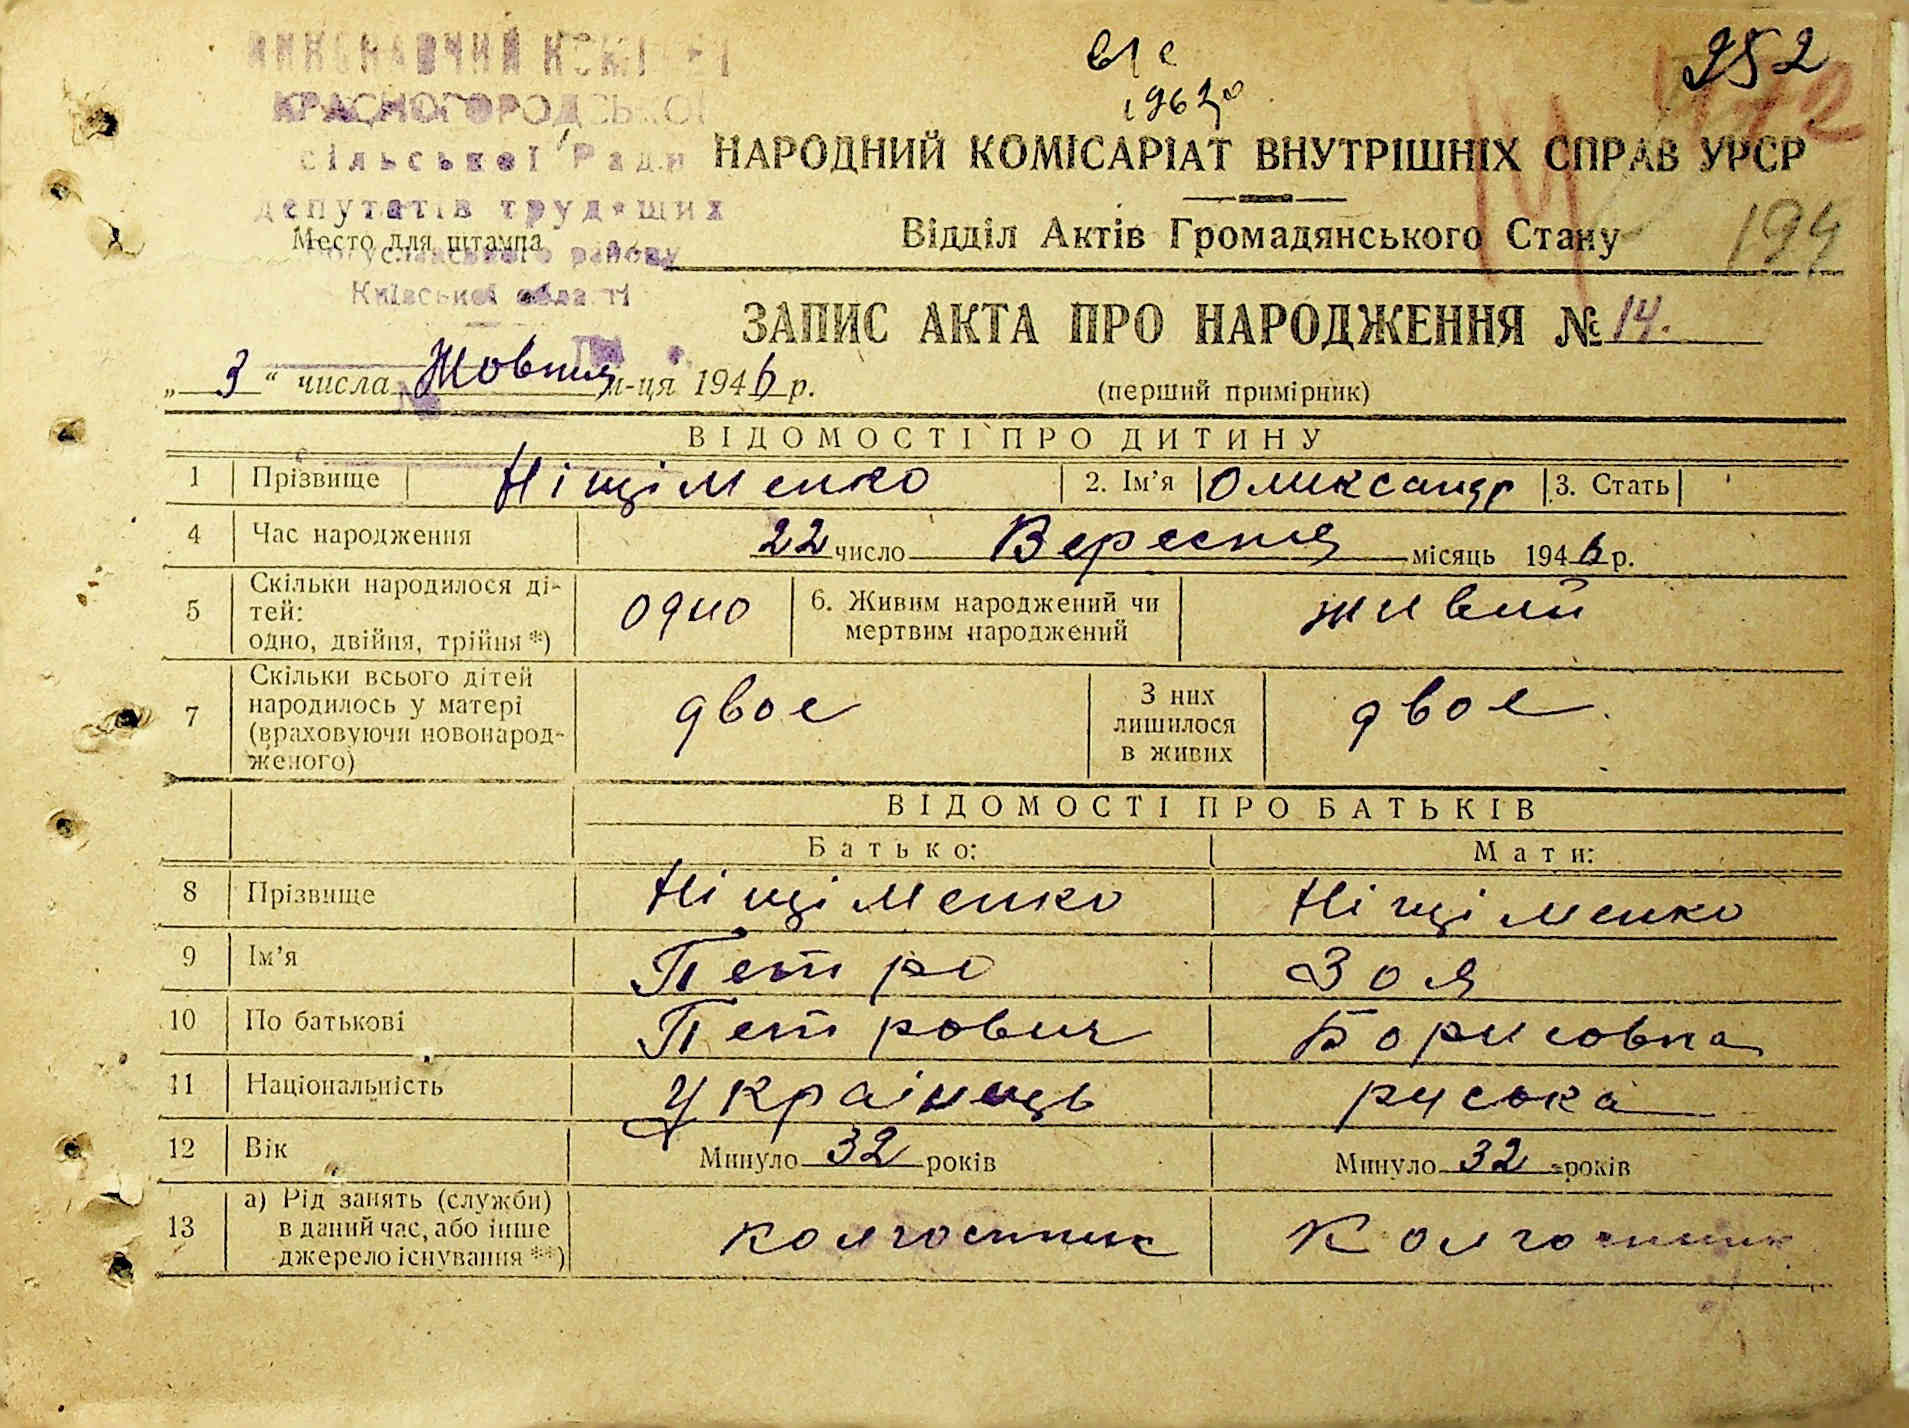 ВИКОНАВЧИЙ КОМІТЕТ
КРАСНОГОРОДСЬКОЇ
сільської Ради
депутатів трудящих
Место для штампа
Богуславського району
Київської області
1962
252
НАРОДНИЙ КОМІСАРІАТ ВНУТРІШНІХ СПРАВ УРСР
Відділ Актів Громадянського Стану
194
ЗАПИС АКТА ПРО НАРОДЖЕННЯ № 14.
„ 3 “ числа Жовтня м-ця 1946 р.
(перший примірник)
ВІДОМОСТІ ПРО ДИТИНУ
1 Прізвище Ніщіменко 2. Ім’я Оликсандр 3. Стать
4 Час народження 22 число Вересня місяць 1946 р.
5 Скільки народилося ді-
тей:
одно, двійня, трійня *) одно 6. Живим народжений чи
мертвим народжений живий
7 Скільки всього дітей
народилось у матері
(враховуючи новонарод-
женого) двое З них
лишилося
в живих двое.
ВІДОМОСТІ ПРО БАТЬКІВ
Батько: Мати:
8 Прізвище Ніщіменко Ніщіменко
9 Ім’я Петро Зоя
10 По батькові Петрович Борисовна
11 Національність Українець руська
12 Вік Минуло 32 років Минуло 32 років
13 а) Рід занять (служби)
в даний час, або інше
джерело існування **) колгоспник Колгоспник